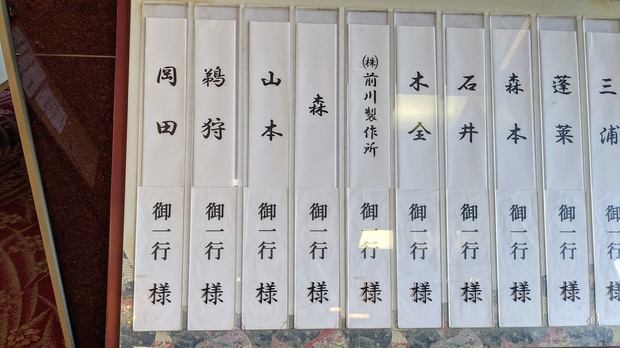 三浦 御一行 様
蓬莱 御一行 様
森本 御一行 様
石井 御一行 様
木全 御一行 様
㈱前川製作所 御一行 様
森 御一行 様
山本 御一行 様
鵜狩 御一行 様
岡田 御一行 様